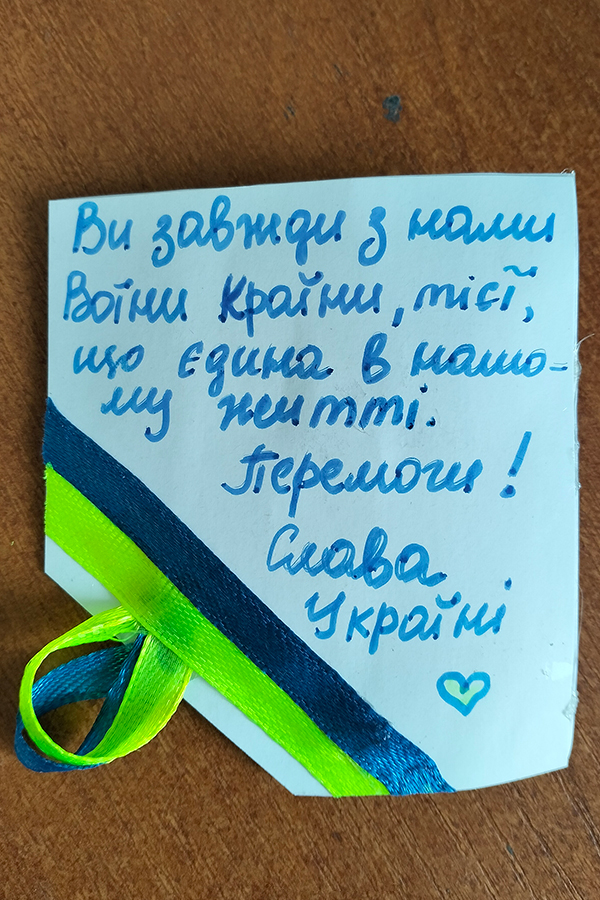 Ви завжди з нами
Воїни Країни, тієї,
що єдина в нашо-
му житті.
Перемоги!
Слава
Україні